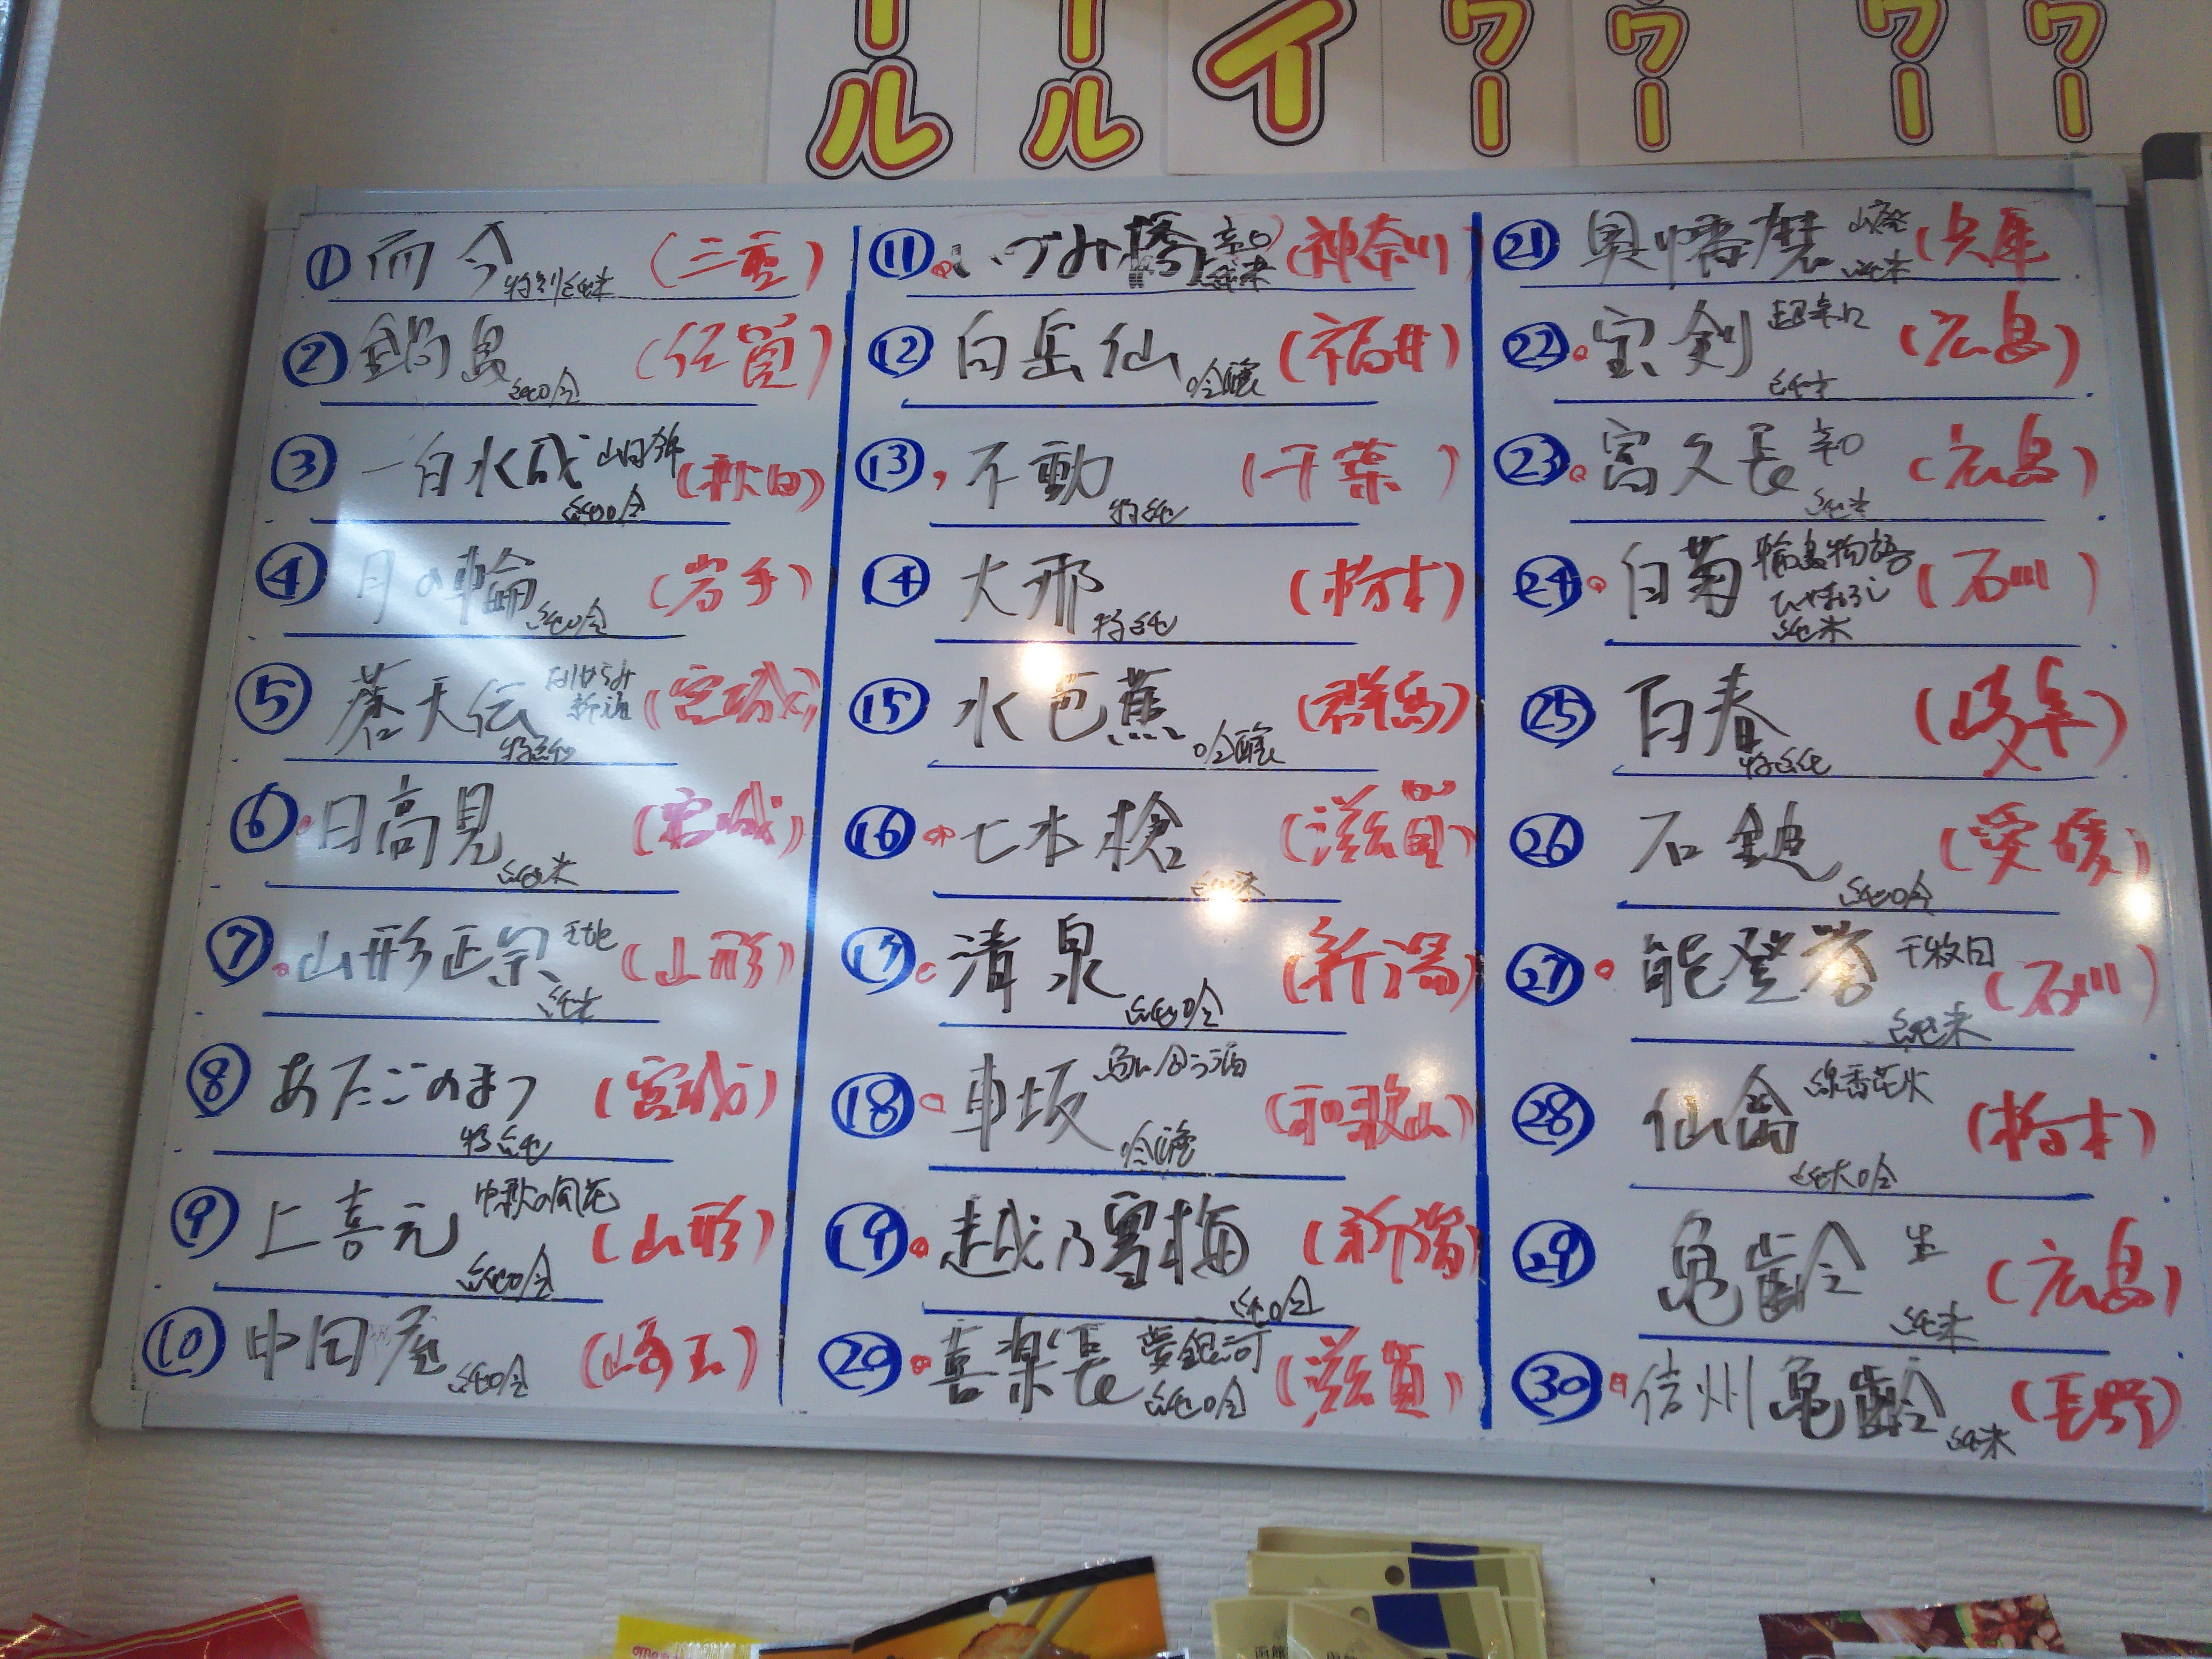 ール
ール
イ
ワー
ワー
ワー
ワー
① 而今 特別純米 (三重)
② 鍋島 純吟 (佐賀)
③ 一白水成 山田錦 純吟 (秋田)
④ 月の輪 純吟 (岩手)
⑤ 蒼天伝 特純 (宮城)
⑥ 日高見 純米 (宮城)
⑦ 山形正宗 純米 (山形)
⑧ あたごのまつ 特純 (宮城)
⑨ 上喜元 中秋の風花 純吟 (山形)
⑩ 中田屋 純吟 (崎玉)
⑪ いづみ橋 辛口 純米 (神奈川)
⑫ 白岳仙 吟醸 (福井)
⑬ 不動 特純 (千葉)
⑭ 大那 特純 (栃木)
⑮ 水芭蕉 吟醸 (群馬)
⑯ 七本槍 純米 (滋賀)
⑰ 清泉 純吟 (新潟)
⑱ 車坂 魚に合う酒 吟醸 (和歌山)
⑲ 越乃雪梅 純吟 (新潟)
⑳ 喜楽長 夢銀河 純吟 (滋賀)
㉑ 奥播磨 山廃 純米 (兵庫)
㉒ 宝剣 超辛口 純米 (広島)
㉓ 富久長 辛口 純米 (広島)
㉔ 白菊 輪島物語 ひやおろし 純米 (石川)
㉕ 百春 特純 (岐阜)
㉖ 石鎚 純吟 (愛媛)
㉗ 能登誉 千枚田 純米 (石川)
㉘ 仙禽 線香花火 純大吟 (栃木)
㉙ 亀齢 生 純米 (広島)
㉚ 信州亀齢 純米 (長野)